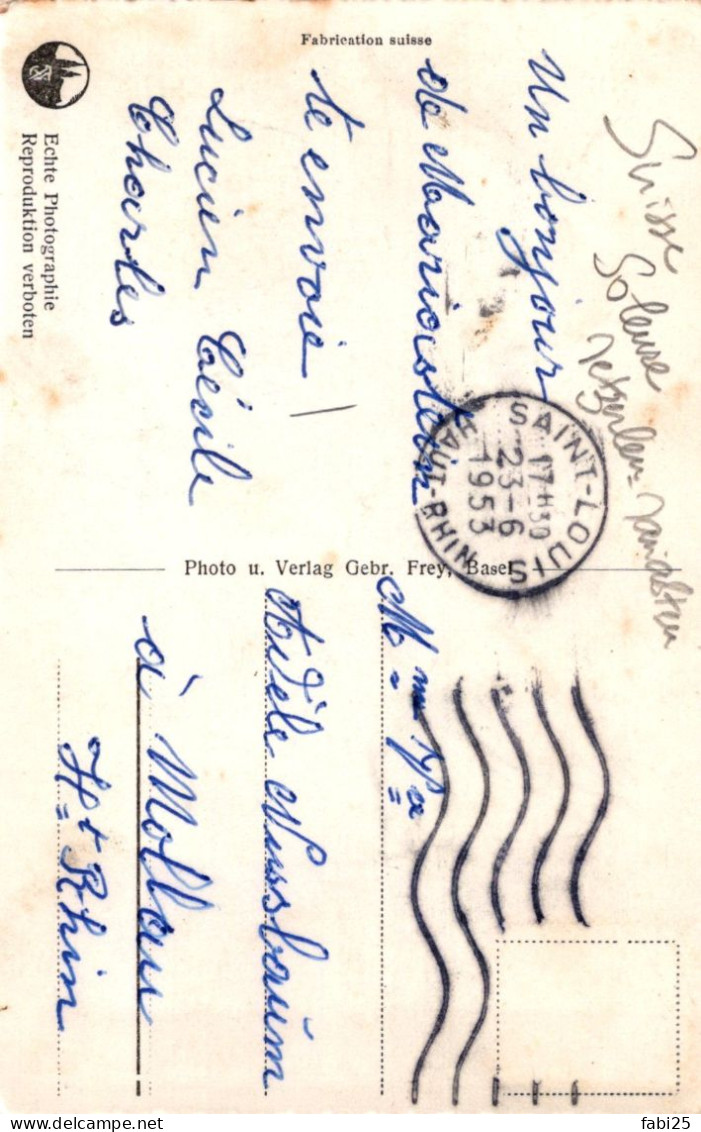 Fabrication suisse
Un bonjour
de Mariastein
te envoie
Lucien Cécile
Charles
Echte Photographie
Reproduktion verboten
Suisse
Soleure
SAINT-LOUIS
17H30
23-6
1953
HAUT-RHIN
Photo u. Verlag Gebr. Frey, Basel
Mme Vve
Adèle Nussbaum
à Mollau
Ht Rhin
fabi25